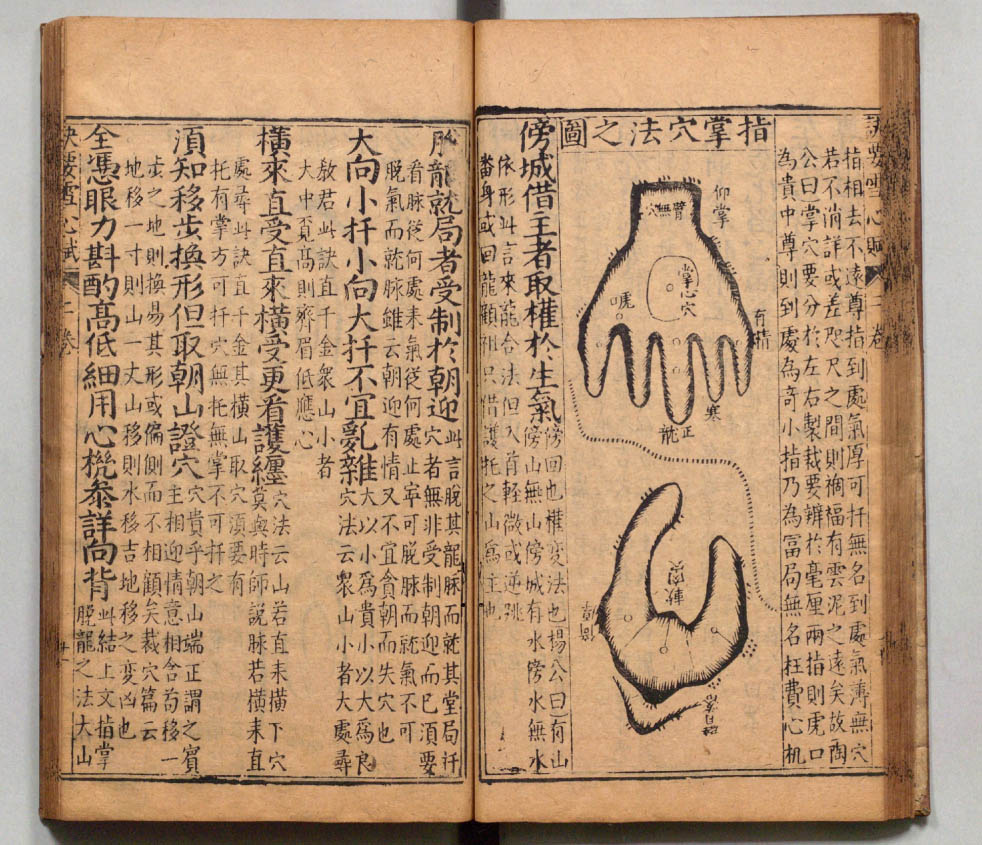 要雪心賦 二卷
指相去不遠尊指到處氣厚可扦無名到處氣薄無穴
若不消詳或差咫尺之間則禍福有雲泥之遠矣故陶
公曰掌穴要分於左右製裁要辨於毫厘兩指則虎口
為貴中尊則到處為奇小指乃為富局無名枉費心机
指掌穴法之圖
仰掌
臂無穴
掌心穴
虎口
有情
寒
正龍
傍城借主者取權於生氣
傍回也權變法也楊公曰有山
傍山無山傍城有水傍水無水山
依形此言來龍合法但入首軽微或逆跳
畨身或回龍顧祖只借護托之山為主也
脫龍就局者受制於朝迎
此言脫其龍脉而就其堂局扦
穴者無非受制朝迎而已須要
看脉從何處來氣從何處止寕可脫脉而就氣不可
脫氣而就脉雖云朝迎有情又不宜貪朝而失穴也
大向小扦小向大扦不宜亂雜
大以小為貴小以大為良
穴法云衆山小者大處尋
教君此訣直千金衆山小者
大中覓高則齊眉低應心
橫來直受直來橫受更看護纒
穴法云山若直耒橫下穴
莫與時師說脉若橫耒直
處尋此訣直千金其橫山取穴須要有
托有掌方可扦穴無托無掌不可扦之
須知移步換形但取朝山證穴
穴貴乎朝山端正謂之賓
主相迎情意相含苟移一
步之地則換易其形或偏側而不相顧矣裁穴篇云
地移一寸則山一丈山移則水移吉地移之變凶也
全憑眼力斟酌高低細用心機叅詳向背
此結上文指掌
脫龍之法大山
訣要雪心賦 二卷